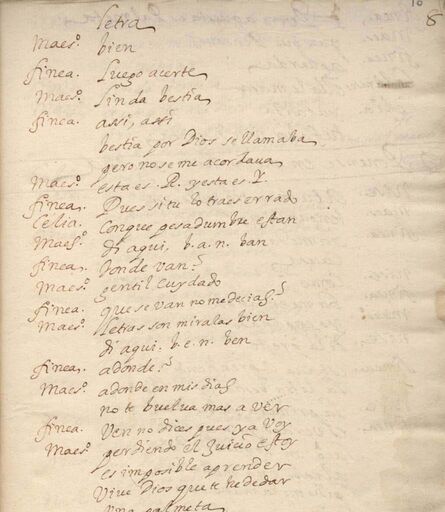 10
8
letra
Maesº. bien
finea. Luego acerte
Maesº. Linda bestia
finea. assi, assi
bestia por Dios se llamaba
pero no se me acordaua
Maesº. esta es. R. y esta es. I.
finea. Pues si tu lo traes errado
Celia. Con que pesadumbre estan
Maesº. di aqui, b. a. n. ban
finea. donde van?
Maesº. gentil cuydado
finea. que se van no me decias?
Maesº. Letras son miralas bien
di aqui. b. e. n. ben
finea. adonde?
Maesº. adonde en mis dias
no te buelua mas a ver
finea. Ven no dices pues ya voy
Maesº. perdiendo el juicio estoy
es imposible aprender
Vive Dios que te he de dar
Una palmeta